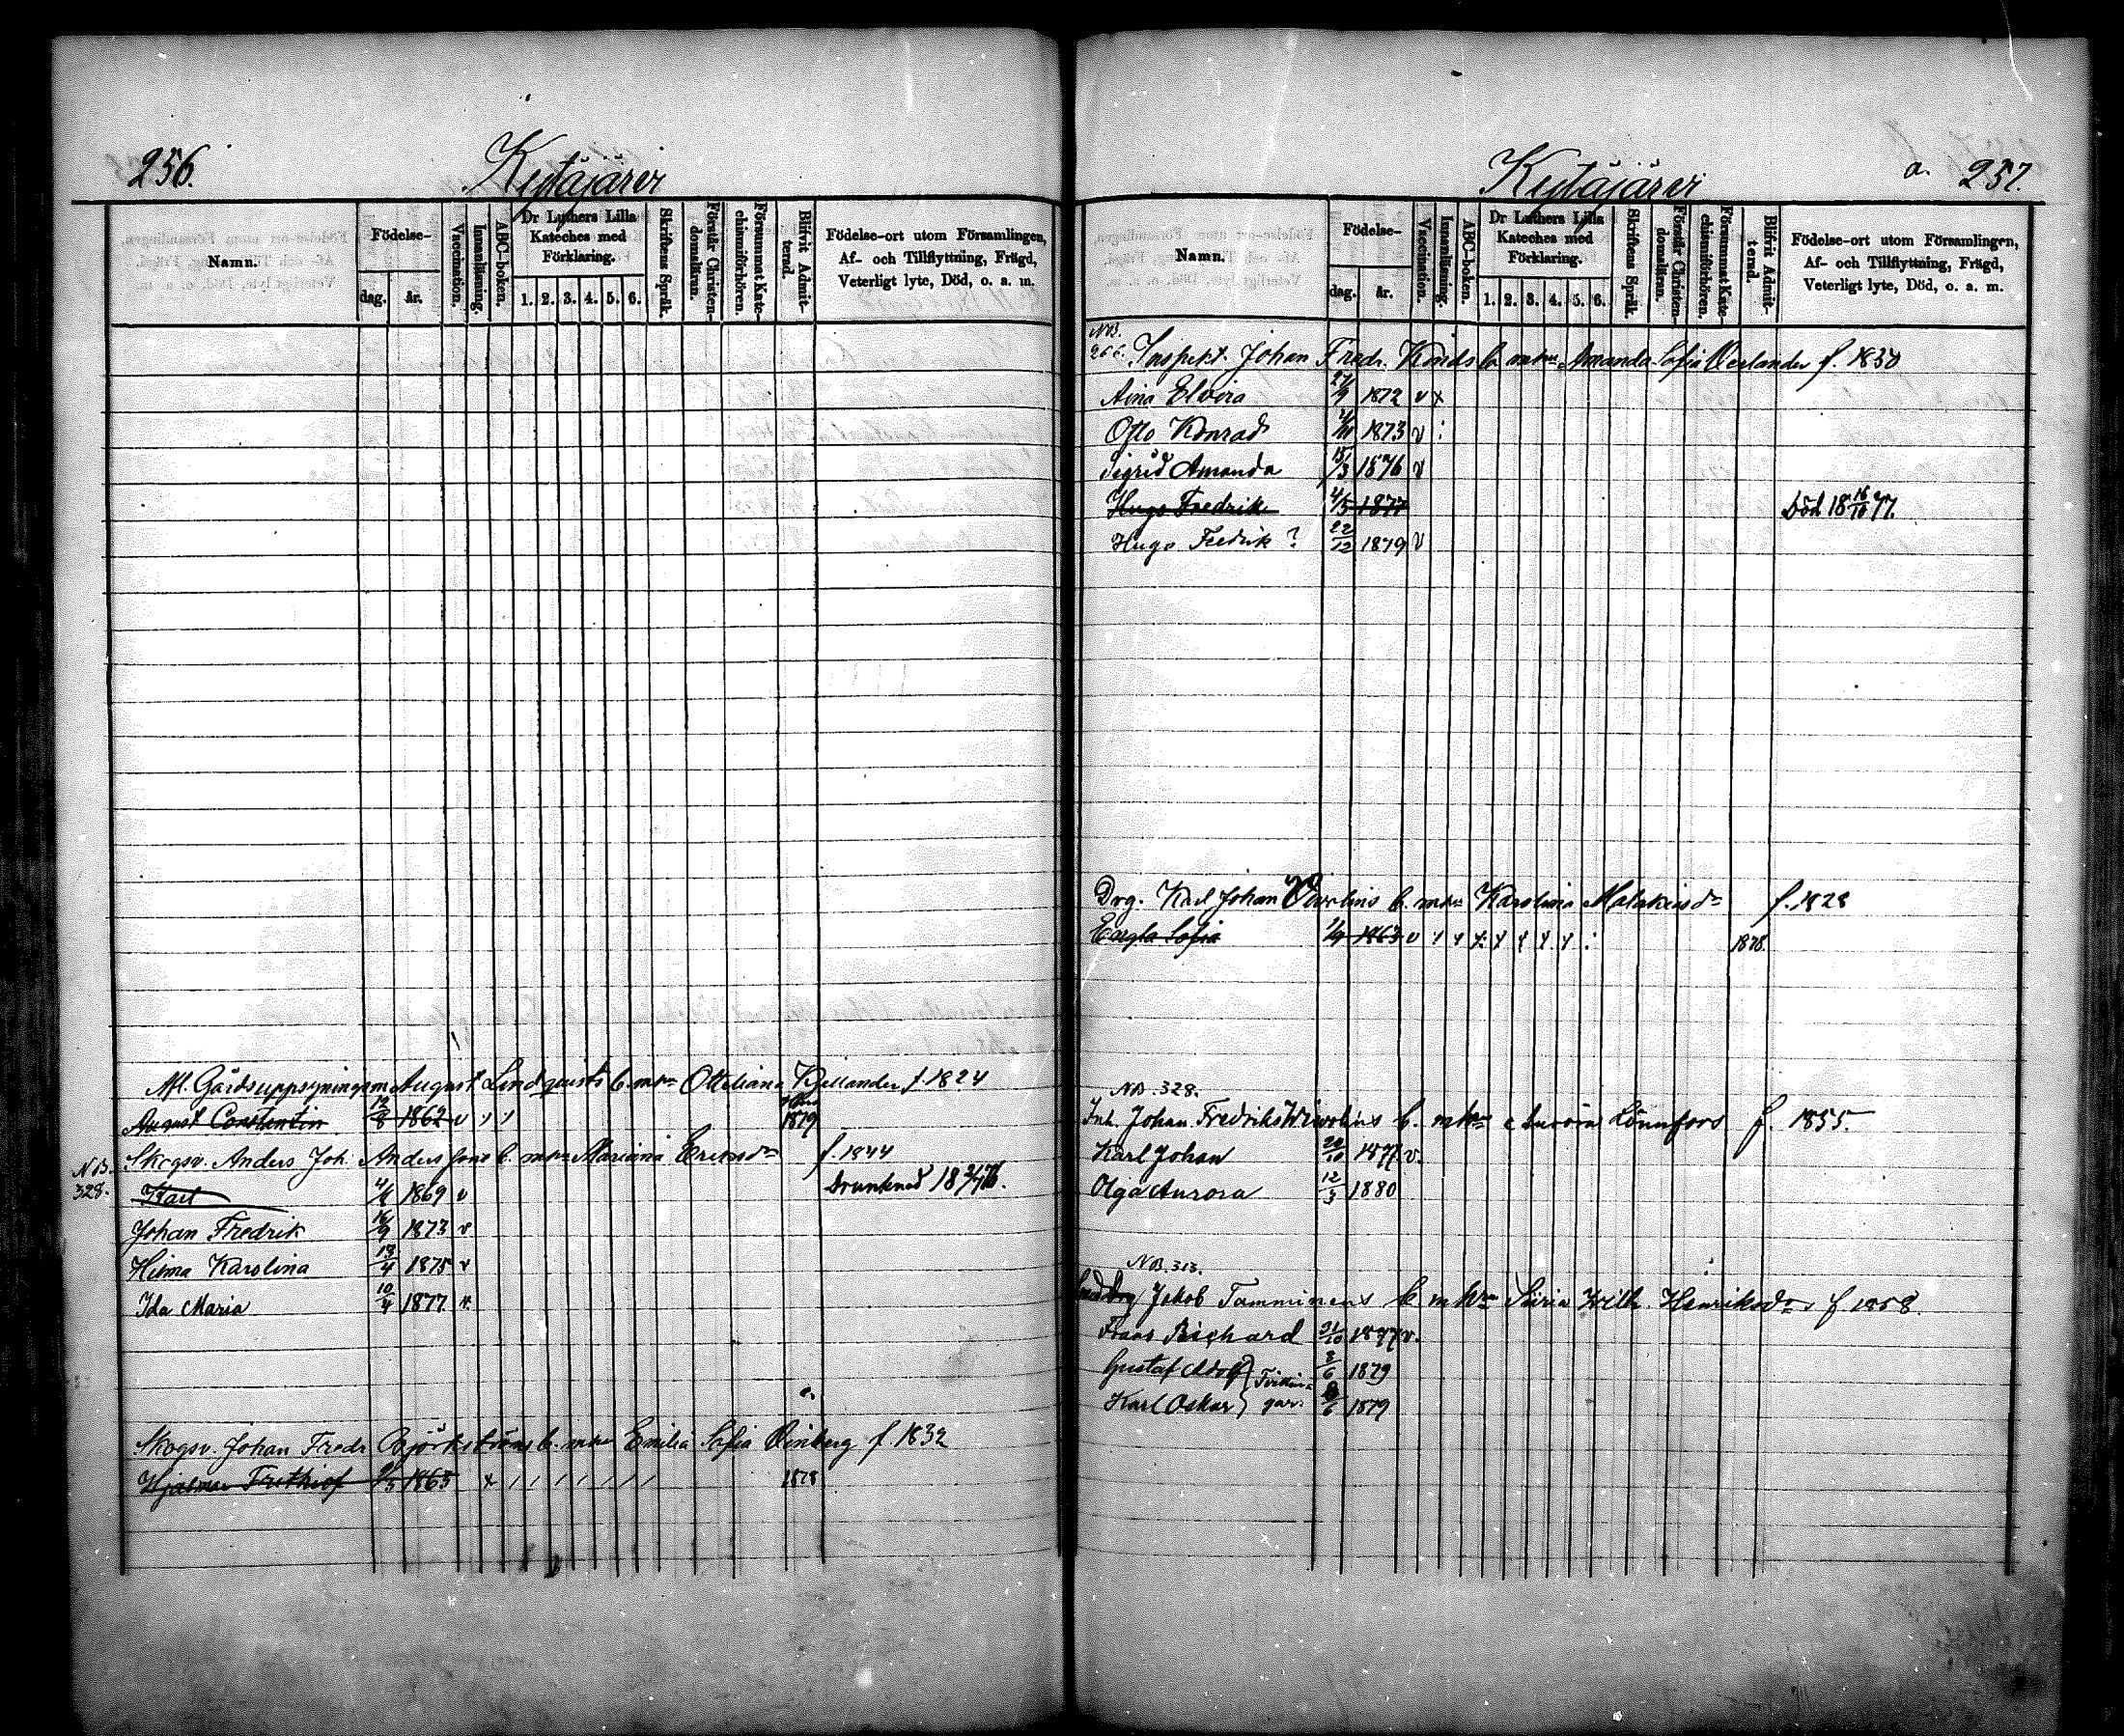 256.
Kytäjärvi
Namn.
Födelse-
dag.
år.
Vaccination.
Innanläsning.
ABC-boken.
Dr Luthers Lilla
Kateches med
Förklaring.
1. 2. 3. 4. 5. 6.
Skriftens Språk.
Förstår Christen-
domsläran.
Försummat Kate-
chismiförhören.
Blifvit Admit-
terad.
Födelse-ort utom Församlingen,
Af- och Tillflyttning, Frägd,
Veterligt lyte, Död, o. a. m.
Gårdsuppsyningsm August Lindqvists b. m. Otteliana f. 1824
August Constantin 12/8 1862 v 1879
Skogsv. Anders Joh. Anderssons b. m. Mariana Eriksdr f. 1844
NB. 328.
Karl 1869 v Drunknad
Johan Fredrik 16/9 1873 v
Hilma Karolina 13/4 1875 v
Ida Maria 10/4 1877 v
a.
Skogsv. Johan Fredr. Björkströms b. m. Emilia Sofia f. 1832
Hjalmar Frithiof 1863 x 1878
Kytäjärvi
a. 257.
Namn.
Födelse-
dag.
år.
Vaccination.
Innanläsning.
ABC-boken.
Dr Luthers Lilla
Kateches med
Förklaring.
1. 2. 3. 4. 5. 6.
Skriftens Språk.
Förstår Christen-
domsläran.
Försummat Kate-
chismiförhören.
Blifvit Admit-
terad.
Födelse-ort utom Församlingen,
Af- och Tillflyttning, Frägd,
Veterligt lyte, Död, o. a. m.
NB.
266. Inspekt. Johan Fredr. b. m. Amanda Sofia f. 1850
Aina Elvira 27/9 1872 v x
Otto Konrad 1873 v
Sigrid Amanda 15/3 1876 v
Hugo Fredrik 4/5 1877 Död 18 16/10 77.
Hugo Fredrik ? 22/12 1879 v
Drg. Karl Johan b. m. Karolina Malakiasdr f. 1828
Engla Sofia 1863 v 1878.
NB. 328.
Inh. Johan Fredriks b. m. Aurora Lönnfors f. 1855.
Karl Johan 1877 v.
Olga Aurora 12/3 1880
NB. 313.
Jakob Tamminens b. m. Wilh. Henriksdr f 1858.
Frans Richard 21/10 1877 v.
Gustaf Adolf } Tvillin- 1879
Karl Oskar } gar. 1879